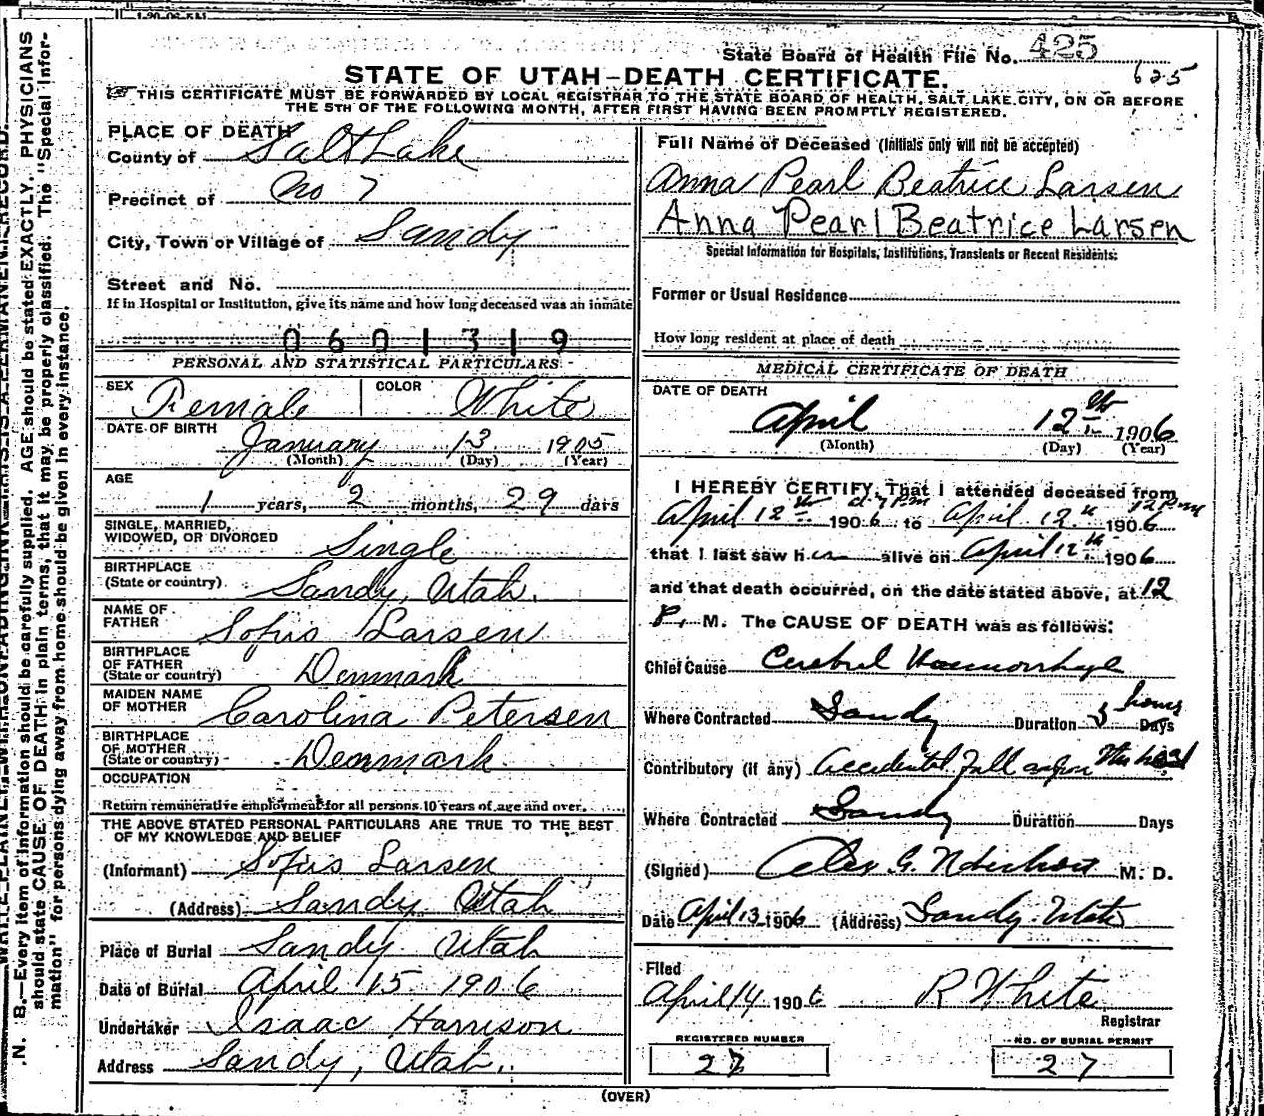 1-20-06-5M
State Board of Health File No. 425
625
STATE OF UTAH-DEATH CERTIFICATE.
THIS CERTIFICATE MUST BE FORWARDED BY LOCAL REGISTRAR TO THE STATE BOARD OF HEALTH, SALT LAKE CITY, ON OR BEFORE
THE 5TH OF THE FOLLOWING MONTH, AFTER FIRST HAVING BEEN PROMPTLY REGISTERED.
PLACE OF DEATH
County of Salt Lake
Precinct of No 7
City, Town or Village of Sandy
Street and No.
If in Hospital or Institution, give its name and how long deceased was an inmate
0601319
PERSONAL AND STATISTICAL PARTICULARS
SEX Female COLOR White
DATE OF BIRTH
January 13 1905
(Month) (Day) (Year)
AGE
1 years, 2 months, 29 days
SINGLE, MARRIED,
WIDOWED, OR DIVORCED Single
BIRTHPLACE
(State or country) Sandy, Utah.
NAME OF
FATHER Sofus Larsen
BIRTHPLACE
OF FATHER
(State or country) Denmark
MAIDEN NAME
OF MOTHER Carolina Petersen
BIRTHPLACE
OF MOTHER
(State or country) Denmark
OCCUPATION
Return remunerative employment for all persons 10 years of age and over.
THE ABOVE STATED PERSONAL PARTICULARS ARE TRUE TO THE BEST
OF MY KNOWLEDGE AND BELIEF
(Informant) Sofus Larsen
(Address) Sandy Utah
Place of Burial Sandy Utah
Date of Burial April 15 1906
Undertaker Isaac Harrison
Address Sandy, Utah.
Full Name of Deceased (Initials only will not be accepted)
Anna Pearl Beatrice Larsen
Anna Pearl Beatrice Larsen
Special Information for Hospitals, Institutions, Transients or Recent Residents:
Former or Usual Residence
How long resident at place of death
MEDICAL CERTIFICATE OF DEATH
DATE OF DEATH
April 12th 1906
(Month) (Day) (Year)
I HEREBY CERTIFY, That I attended deceased from
April 12th at 7 P.m 1906 to April 12th 12 P.m 1906
that I last saw her alive on April 12th 1906
and that death occurred, on the date stated above, at 12
P. M. The CAUSE OF DEATH was as follows:
Chief Cause Cerebral Haemorrhage
Where Contracted Sandy Duration 5 hours Days
Contributory (if any) Accidental Fall upon the head
Where Contracted Sandy Duration Days
(Signed) Alex G. M. D.
Date April 13 1906 (Address) Sandy Utah
Filed
April 14 1906 R White
Registrar
REGISTERED NUMBER
27
NO. OF BURIAL PERMIT
27
(OVER)
WRITE PLAINLY WITH UNFADING INK—THIS IS A PERMANENT RECORD.
N. B.—Every item of information should be carefully supplied. AGE should be stated EXACTLY. PHYSICIANS
should state CAUSE OF DEATH in plain terms, that it may be properly classified. The "Special Infor-
mation" for persons dying away from home should be given in every instance.